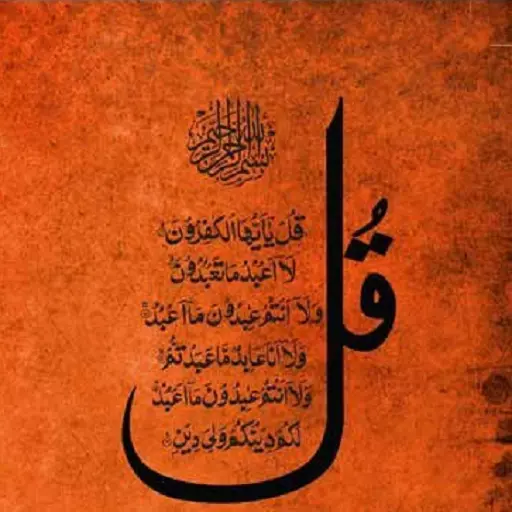 بسم الله الرحمن الرحيم
قل
قُلْ يَٰٓأَيُّهَا الْكَٰفِرُونَ
لَآ أَعْبُدُ مَا تَعْبُدُونَ
وَلَآ أَنْتُمْ عَٰبِدُونَ مَآ أَعْبُدُ
وَلَآ أَنَا عَابِدٌ مَّا عَبَدْتُّمْ
وَلَآ أَنْتُمْ عَٰبِدُونَ مَآ أَعْبُدُ
لَكُمْ دِينُكُمْ وَلِيَ دِينِ